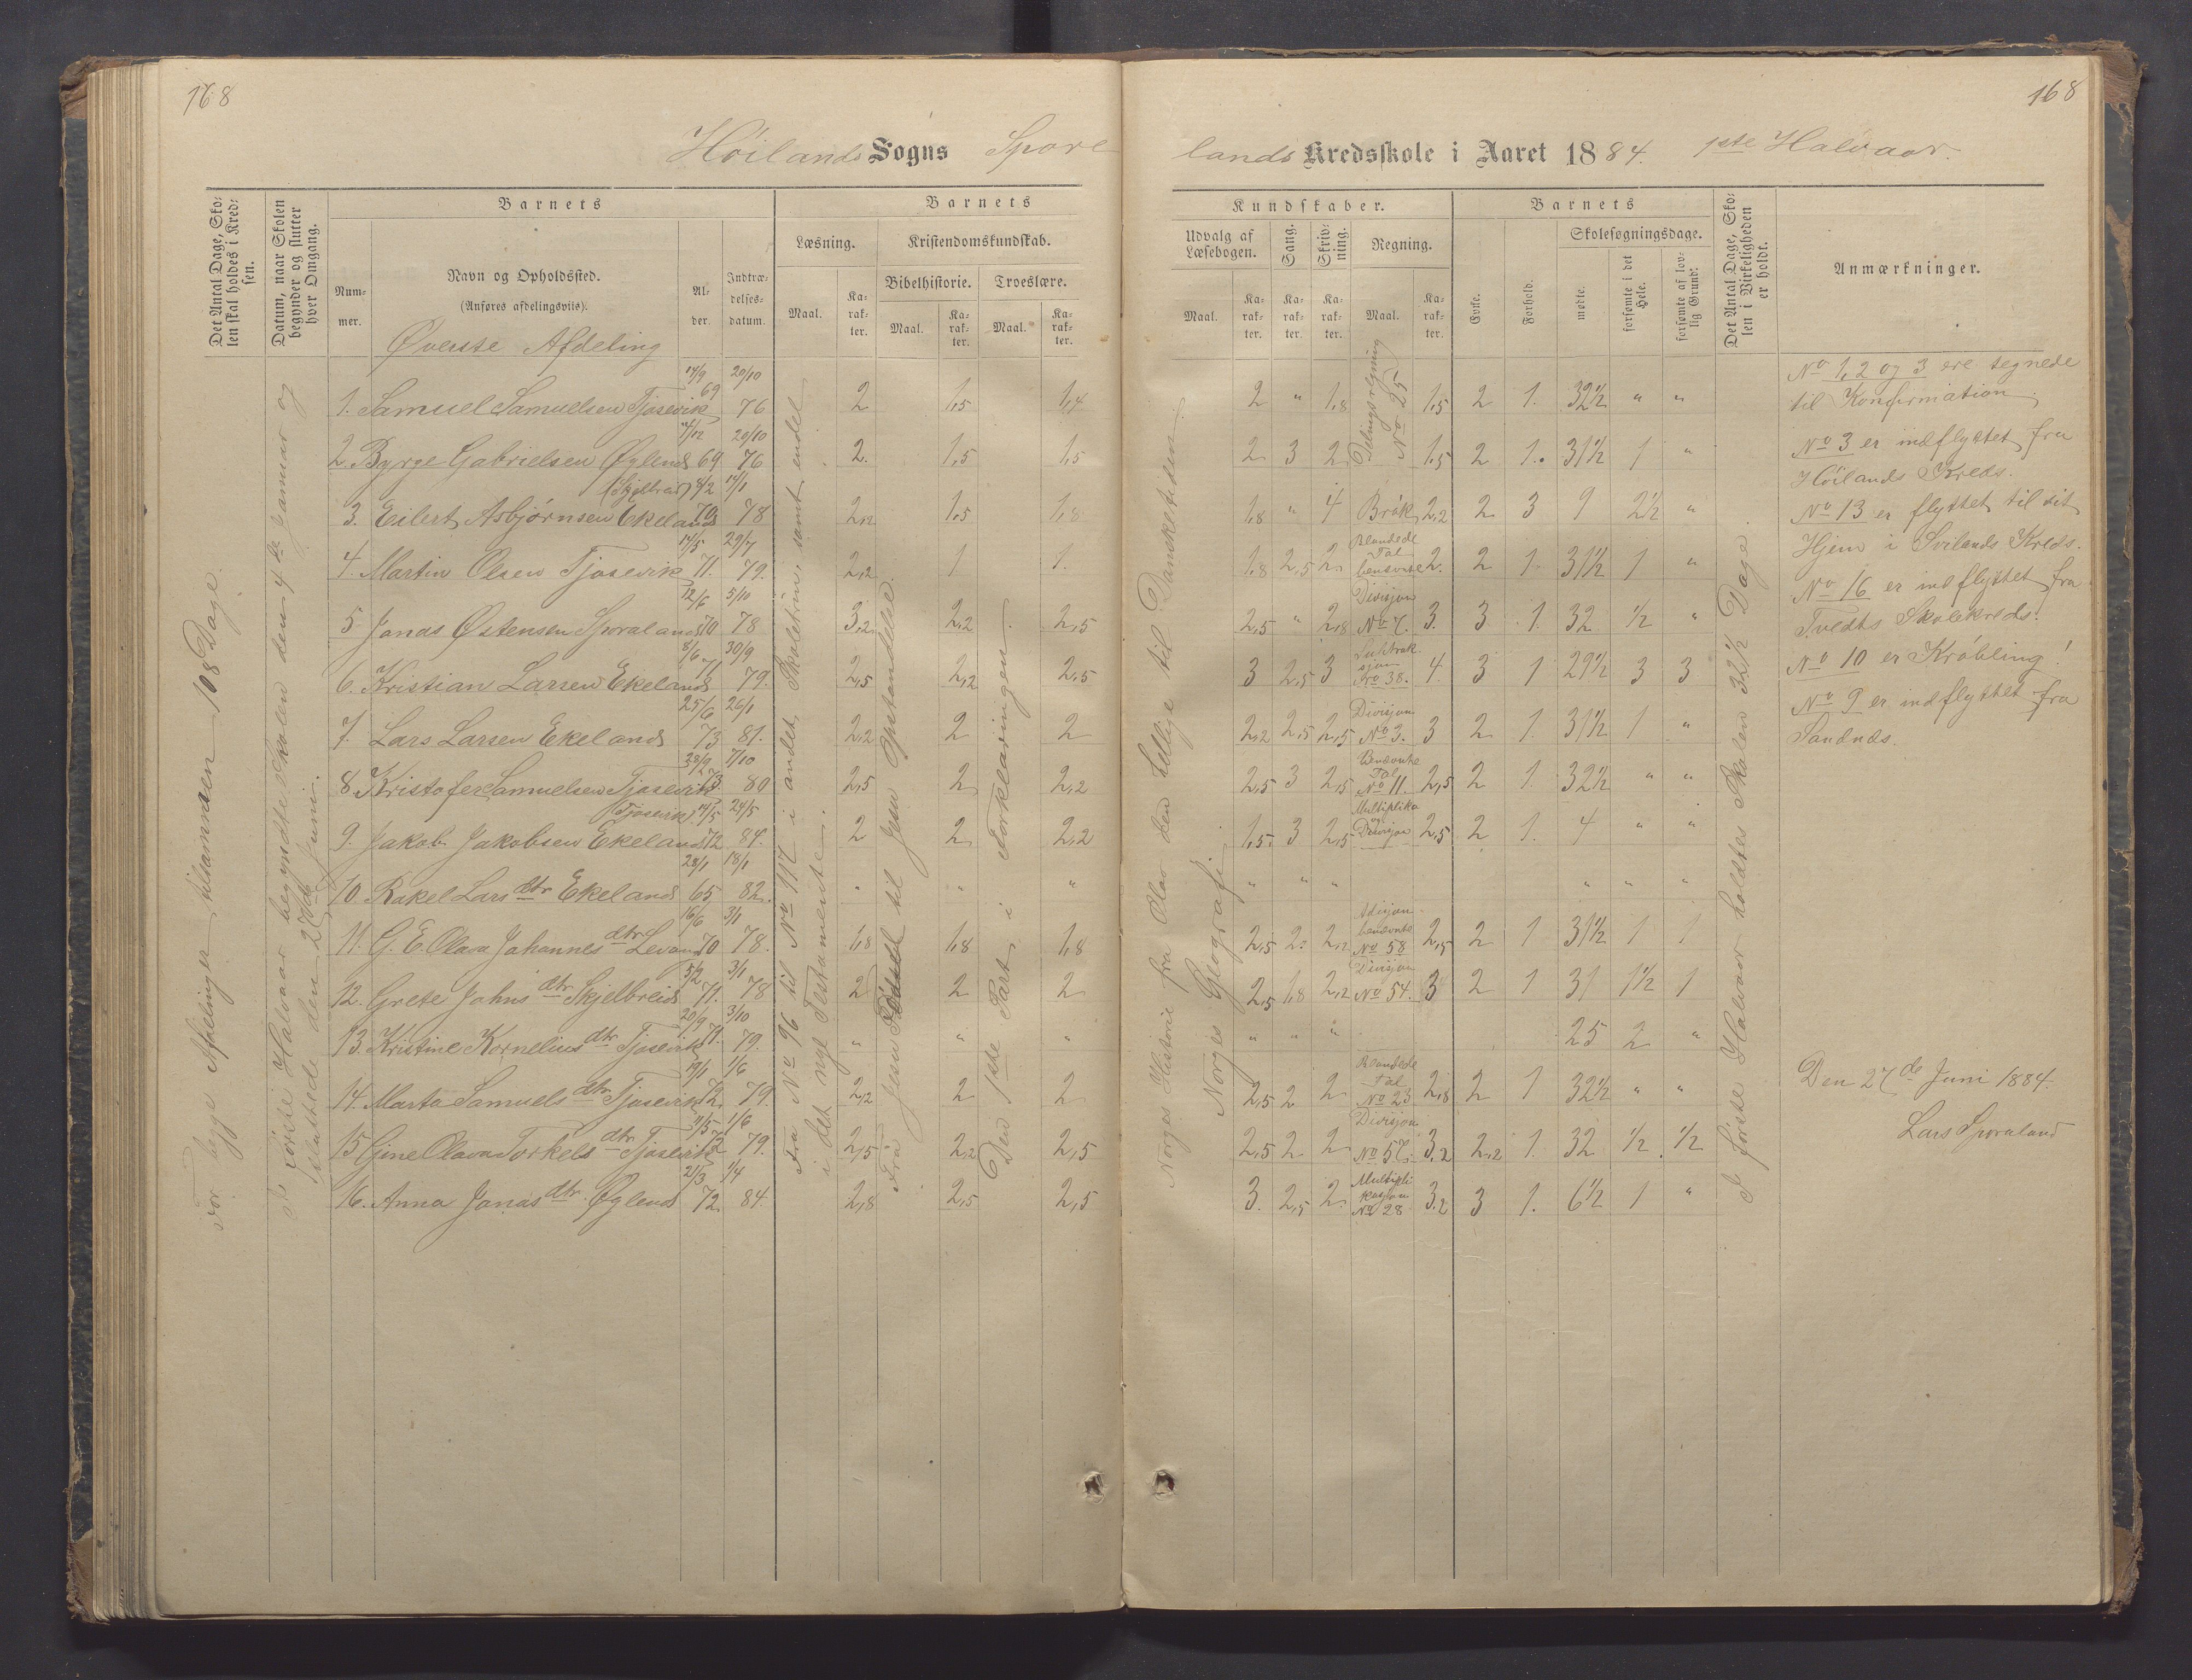 168
168
Høilands Sogns Spore
lands Kredsskole i Aaret 1884. 1ste Halvaar.
Det Antal Dage, Sko-
len skal holdes i Kred-
sen.
Datum, naar Skolen
begynder og slutter
hver Omgang.
Barnets
Num-
mer.
Navn og Opholdssted.
(Anføres afdelingsviis).
Al-
der.
Indtræ-
delses-
datum.
Barnets
Læsning.
Kristendomskundskab.
Bibelhistorie.
Troeslære.
Maal.
Ka-
rak-
ter.
Maal.
Ka-
rak-
ter.
Maal.
Ka-
rak-
ter.
Kundskaber.
Udvalg af
Læsebogen.
Sang.
Skriv-
ning.
Regning.
Maal.
Ka-
rak-
ter.
Ka-
rak-
ter.
Ka-
rak-
ter.
Maal.
Ka-
rak-
ter.
Barnets
Evne.
Forhold.
Skolesøgningsdage.
mødte.
forsømte i det
Hele.
forsømte af lov-
lig Grund.
Det Antal Dage, Sko-
len i Virkeligheden
er holdt.
Anmærkninger.
Øverste Afdeling
For begge Afdelinger tilsammen 108 Dage.
I første Halvaar begyndte Skolen den 4de Januar og
sluttede den 27de Juni.
Fra No 96 til No 117 i andet Skoletrin, samt endel
i det nye Testamente.
Fra Jesu Fødsel til Jesu Opstandelse
Den 1ste Part i Forklaringen
Norges Historie fra Olav den hellige til Dansketiden.
Norges Geografi.
I første Halvaar holdtes Skolen 32 1/2 Dage.
1. Samuel Samuelsen Tjosevik 14/9 69 20/10 76 2 1,5 1,4 2 " 1,8 Delingsregning No 25 1,5 2 1. 32 1/2 " "
2. Byrge Gabrielsen Øglend 4/12 69 20/10 76 2. 1,5 1,5 2 3 2 1,5 2 1. 31 1/2 1 "
3. Eilert Asbjørnsen Ekeland (Skjelbreid) 8/2 70 14/1 78 2,2 1,5 1,8 1,8 " 4 Brøk 2,2 2 3 9 2 1/2 "
4. Martin Olsen Tjosevik 14/5 71. 29/7 79. 2,2 1 1. 1,8 2,5 2 Blandede Tal benævnte 2. 2 1 31 1/2 1 "
5 Jonas Østensen Sporaland 12/6 70 5/10 78 3,2 2,2 2,5 2,5 " 2,8 Divisjon No 7. 3. 3 1. 32 1/2 "
6. Kristian Larsen Ekeland 8/6 71 30/9 79. 2,5 2,2 2,5 3 2,5 3 Subtraksjon No 38. 4. 3 1 29 1/2 3 3
7. Lars Larsen Ekeland 25/6 73 26/1 81. 2,2 2 2 2,2 2,5 2,5 Divisjon No 3. 3 2 1. 31 1/2 1 "
8. Kristofer Samuelsen Tjosevik 28/9 73 7/10 80 2,5 2 2,2 2,5 3 2,5 Benævnte Tal No 11. 2,5 2 1. 32 1/2 " "
9. Jakob Jakobsen Ekeland (Tjosevik) 14/5 72 24/5 84. 2 2 2,2 1,5 3 2,5 Multiplika og Divisjon 2,5 2 1. 4 " "
10 Rakel Larsdtr Ekeland 28/1 65 18/1 82. " " " " " " " " "
11. G. E. Olava Johannesdtr Levang 16/6 70 3/1 78. 1,8 1,8 1,8 2,5 2. 2,2 Adisjon benævnte No 58 2,5 2 1 31 1/2 1 1
12. Grete Johnsdtr Skjelbreid 5/2 71. 3/1 78 2 2 2 2,5 1,8 2,2 Divisjon No 54. 3 2 1 31 1 1/2 1
13. Kristine Korneliusdtr Tjosevik 20/9 71. 3/10 79. " " " " " " 25 2 "
14. Marta Samuelsdtr Tjosevik 72. 1/6 79. 2,2 2 2 2,5 2 2 Blandede Tal No 23 2,8 2 1 32 1/2 " "
15 Gine Olava Torkelsdtr Tjosevik 72 1/6 79. 2,5 2,2 2,5 2,5 2 2 Divisjon No 57. 3,2 2,2 1. 32 1/2 1/2
16. Anna Jonasdtr. Øglend 21/3 72. 1/4 84. 2,8 2,5 2,5 3. 2,5 2. Multiplikasjon No 28 3,2 3 1. 6 1/2 1 "
No 1, 2 og 3 ere tegnede
til Konfirmation.
No 3 er indflyttet fra
Høilands Kreds.
No 13 er flyttet til sit
Hjem i Svilands Kreds.
No 16 er indflyttet fra
Tvedts Skolekreds.
No 10 er Krøbling!
No 9 er indflyttet fra
Sandnæs.
Den 27de Juni 1884.
Lars Sporaland